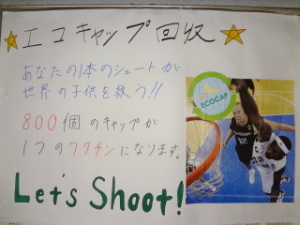 エコキャップ回収
あなたの1本のシュートが
世界の子供を救う!!
ECOCAP
800個のキャップが
1つのワクチンになります。
Let's Shoot!